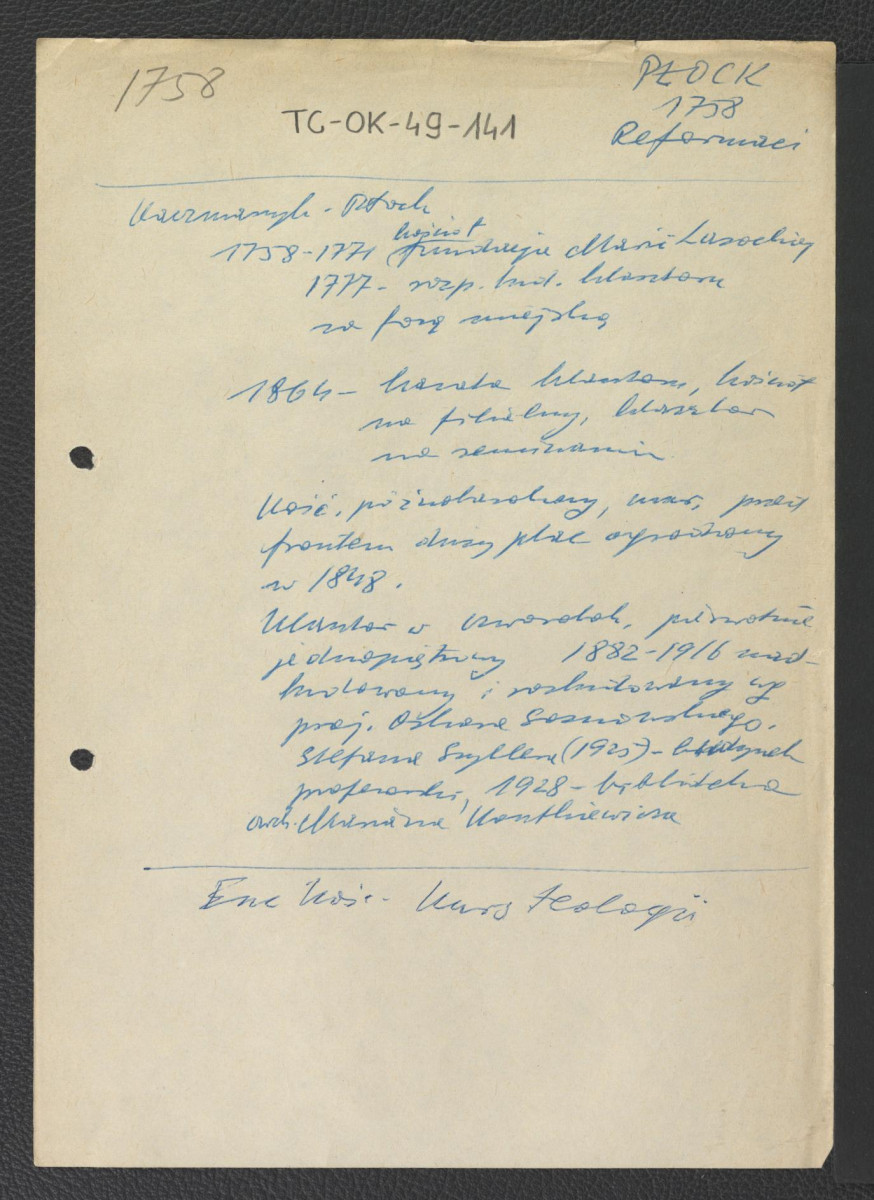 1758
TC-OK-49-141
PŁOCK
1758
Reformaci
Kaczmarczyk - Płock
kościół
1758-1771 fundacja Marii Lasockiej
1777 - rozp. bud. klasztoru
za fosą miejską
1864 - kasata klasztoru, kościół
na filialny, klasztor
na seminarium
Kość. późnobarokowy, mur., przed
frontem duży plac ogrodzony
w 1848.
Klasztor w czworobok, pierwotnie
jednopiętrowy 1882-1916 nad-
budowany i rozbudowany wg
proj. Oskara Sosnowskiego.
Stefana Szyllera (1925) - budynek
profesorski, 1928 - biblioteka
arch. Mariana
Enc Kość - Kurs teologii